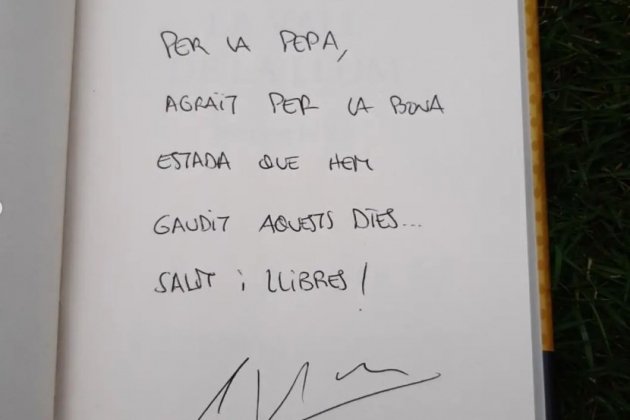 PER LA PEPA,
AGRAÏT PER LA BONA
ESTADA QUE HEM
GAUDIT AQUESTS DIES...
SALUT i LLIBRES!